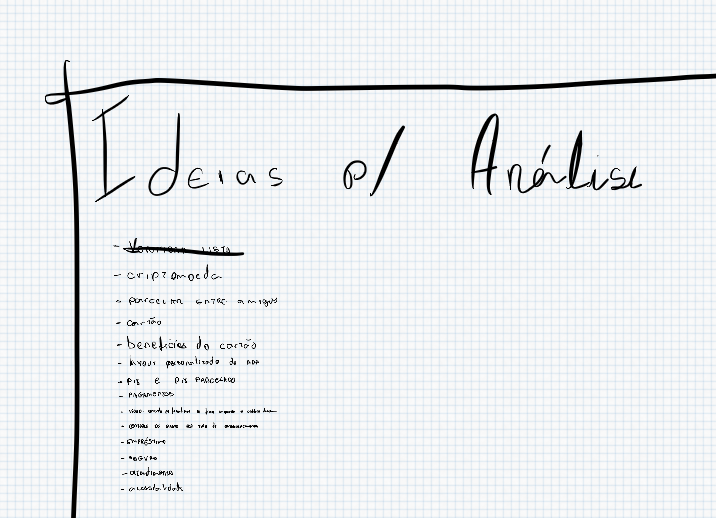 Ideias p/ Análise
- lista
- criptomoeda
- parcelar entre amigos
- cartão
- benefícios do cartão
- layout personalizado do app
- PIX e PIX PARCELADO
- PAGAMENTOS
- EMPRÉSTIMO
- SEGURO
- atendimento
- acessibilidade